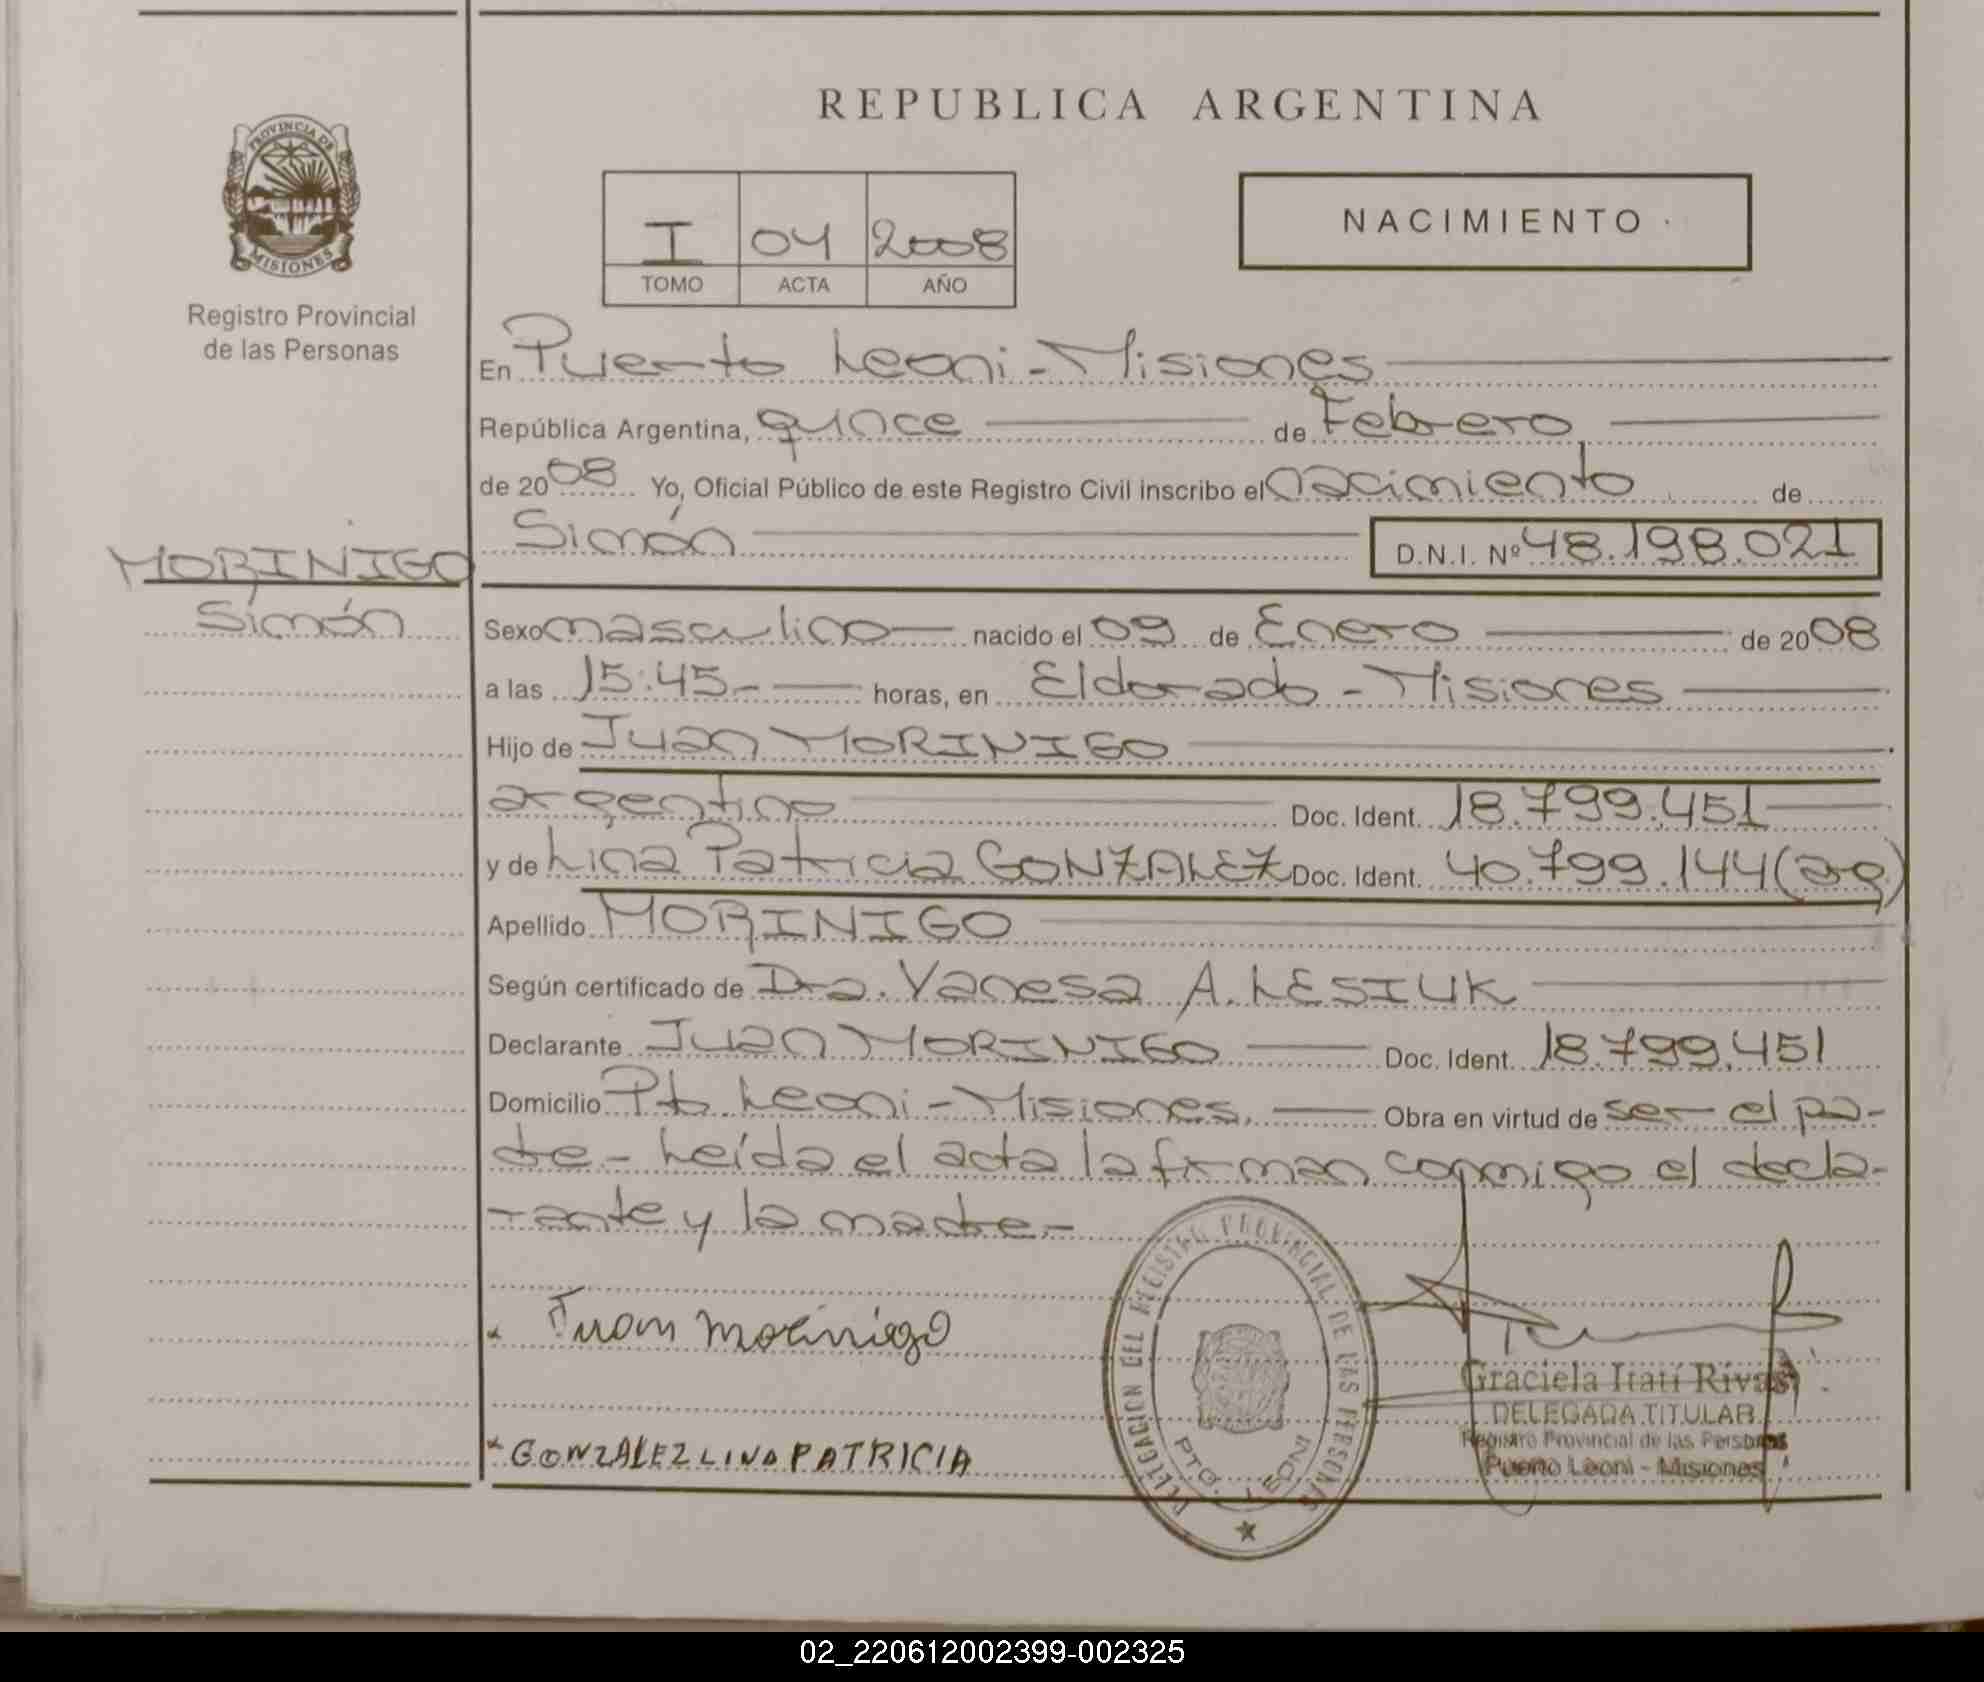 REPUBLICA ARGENTINA
PROVINCIA DE
MISIONES
Registro Provincial
de las Personas
I 04 2008
TOMO ACTA AÑO
NACIMIENTO
En Puerto Leoni - Misiones
República Argentina, quince de Febrero
de 2008 Yo, Oficial Público de este Registro Civil inscribo el nacimiento de
Simón D.N.I. Nº 48.198.021
MORINIGO
Simón
Sexo masculino nacido el 09 de Enero de 2008
a las 15:45.- horas, en Eldorado - Misiones
Hijo de Juan MORINIGO
argentino Doc. Ident. 18.799.451
y de Lina Patricia GONZALEZ Doc. Ident. 40.799.144 (ag)
Apellido MORINIGO
Según certificado de Dra. Vanesa A. LESIUK
Declarante Juan MORINIGO Doc. Ident. 18.799.451
Domicilio Pto. Leoni - Misiones. Obra en virtud de ser el pa-
dre - Leída el acta la firman conmigo el decla-
rante y la madre.-
Juan Morinigo
GONZALEZ LINA PATRICIA
DELEGACION DEL REGISTRO PROVINCIAL DE LAS PERSONAS
PTO. LEONI
Graciela Itatí Rivas
DELEGADA TITULAR
Registro Provincial de las Personas
Puerto Leoni - Misiones
02_220612002399-002325